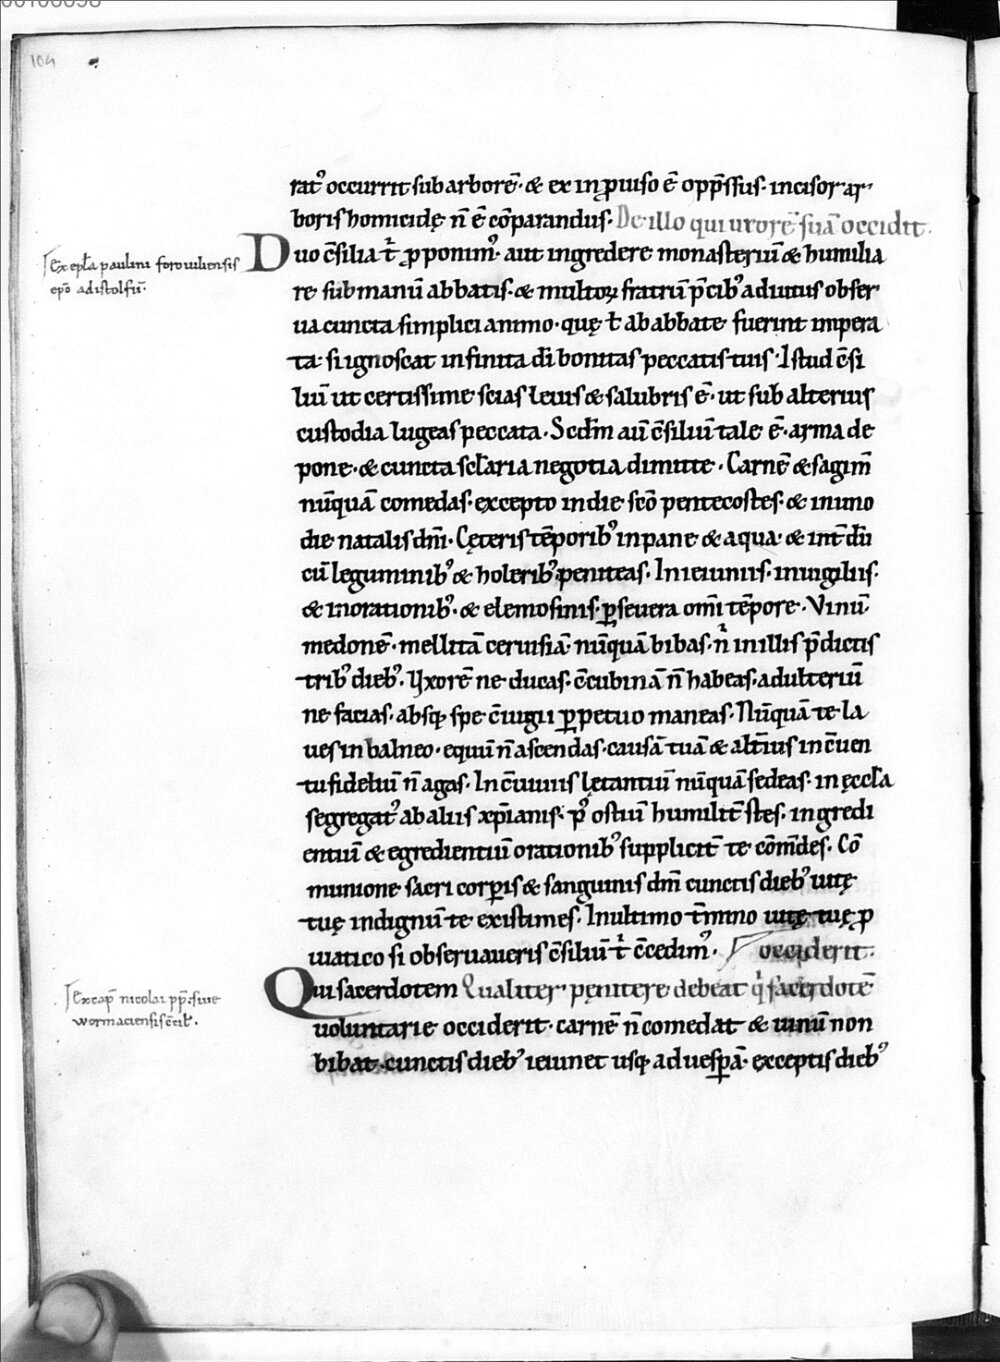 104
ratꝰ occurrit sub arborē· & ex inꝓuiso ē opp̄ssus· incisor ar
boris homicidę n̄ ē cōparandus· De illo qui uxorē suā occidit·
Duo c̄silia t̄ ꝓponimꝰ· aut ingredere monasteriū & humilia
Ex epl̄a paulini foroiuliensis
re sub manū abbatis· & multoꝝ fratrū p̄cibꝰ adiutus obser
ep̄o ad istolfū·
ua cuncta simplici animo· quę t̄ ab abbate fuerint impera
ta· si ignoscat infinita dī bonitas peccatis tuis· Istud c̄si
liū ut certissime scias leuis & salubris ē· ut sub alterius
custodia lugeas peccata· Scdm̄ aū c̄siliū tale ē· arma de
pone· & cuncta sc̄laria negotia dimitte· Carnē & sagim̄
nūquā comedas· excepto in die sc̄o pentecostes· & in uno
die natalis dn̄i· Cęteris tēporibꝰ in pane & aqua· & int̄dū
cū leguminibꝰ & holeribꝰ peniteas· In ieiuniis· in uigiliis·
& in orationibꝰ· & elemosinis· ꝑseuera om̄i tēpore· Vinū
medonē· mellitā ceruisiā· nūquā bibas· n̄ in illis p̄dictis
tribꝰ diebꝰ· Vxorē ne ducas· c̄cubinā n̄ habeas· adulteriū
ne facias· absqꝫ spe c̄iugii ꝑpetuo maneas· Nūquā te la
ues in balneo· equū n̄ ascendas· causā tuā & alt̄ius in c̄uen
tu fideliū n̄ agas· In c̄uiuiis lętantiū nūquā sedeas· in ęccl̄a
segregatꝰ ab aliis xp̄ianis· pꝰ ostiū humilit̄ stes· ingredi
entiū & egredientiū orationibꝰ supplicit̄ te cōm̄des· Cō
munione sacri corꝑis & sanguinis dn̄i cunctis diebꝰ uitę
tuę indignū te existimes· In ultimo t̄mino uitę tuę ꝓ
uiatico si obseruaueris c̄siliū t̄ c̄cedimꝰ· occiderit·
Qui sacerdotem Qualiter pęnitere debeat q̄ sacerdotē
Ex cap̄ nicolai pp̄· siue
uoluntarie occiderit· carnē n̄ comedat & uinū non
wormaciensis c̄cil̄·
bibat· cunctis diebꝰ ieiunet usqꝫ ad uesꝑā· exceptis diebꝰ